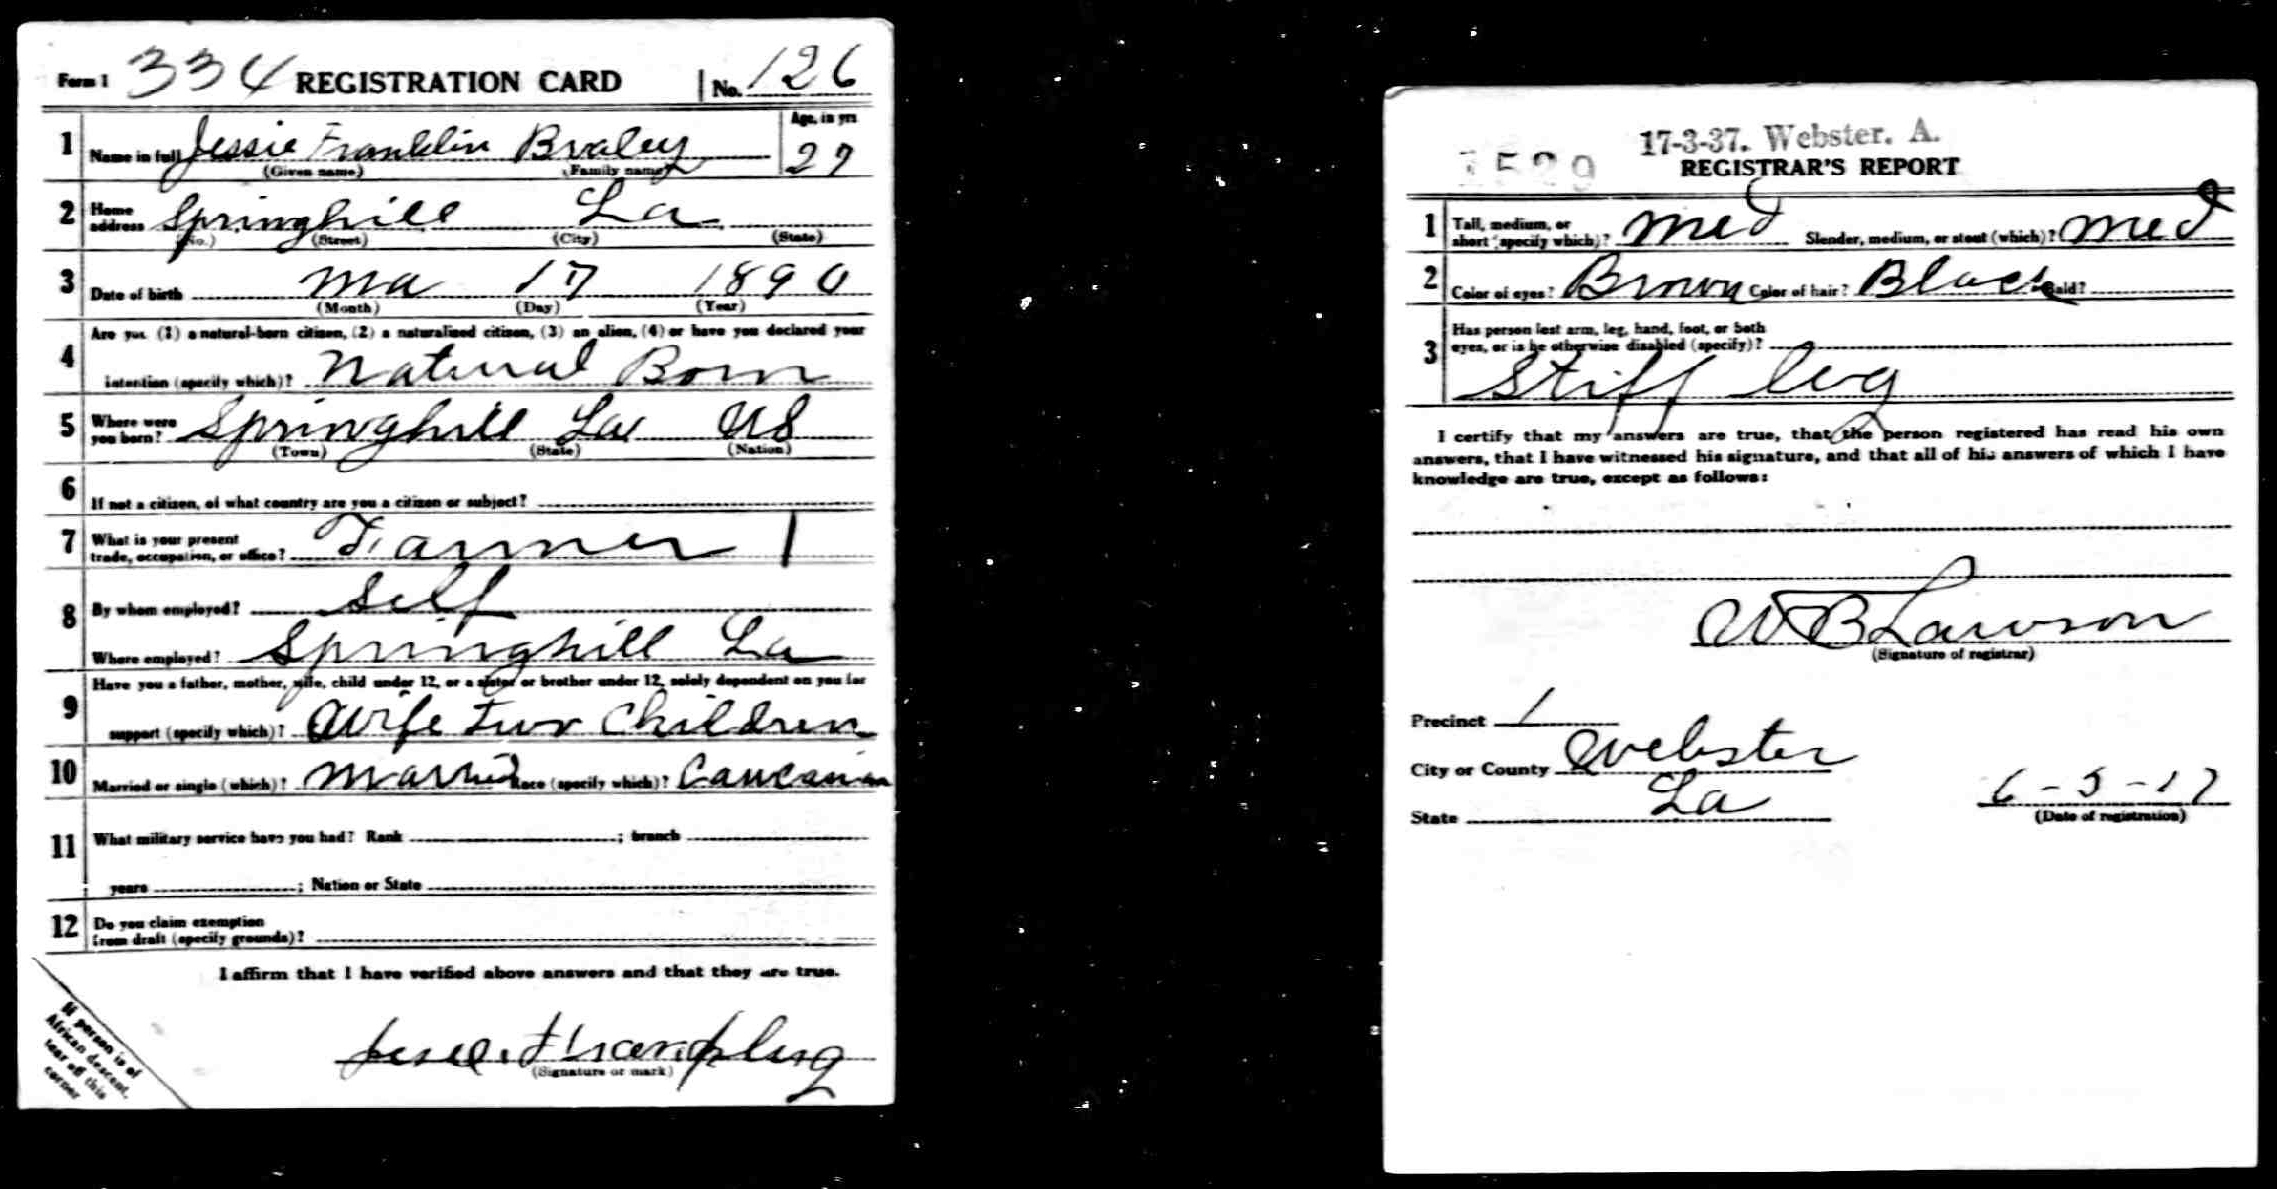 Form 1 334 REGISTRATION CARD No. 126
1 Name in full Jessie Franklin Braley Age, in yrs 27
(Given name) (Family name)
2 Home address Springhill La
(No.) (Street) (City) (State)
3 Date of birth Ma 17 1890
(Month) (Day) (Year)
4 Are you (1) a natural-born citizen, (2) a naturalized citizen, (3) an alien, (4) or have you declared your
intention (specify which)? Natural Born
5 Where were you born? Springhill La US
(Town) (State) (Nation)
6 If not a citizen, of what country are you a citizen or subject?
7 What is your present
trade, occupation, or office? Farmer 1
8 By whom employed? Self
Where employed? Springhill La
9 Have you a father, mother, wife, child under 12, or a sister or brother under 12, solely dependent on you for
support (specify which)? Wife Two Children
10 Married or single (which)? Married Race (specify which)? Caucasian
11 What military service have you had? Rank ; branch
years ; Nation or State
12 Do you claim exemption
from draft (specify grounds)?
I affirm that I have verified above answers and that they are true.
(Signature or mark)
If person is of
African descent,
tear off this
corner
17-3-37. Webster. A.
1529 REGISTRAR'S REPORT
1 Tall, medium, or
short (specify which)? Med Slender, medium, or stout (which)? Med
2 Color of eyes? Brown Color of hair? Black Bald?
3 Has person lost arm, leg, hand, foot, or both
eyes, or is he otherwise disabled (specify)?
Stiff leg
I certify that my answers are true, that the person registered has read his own
answers, that I have witnessed his signature, and that all of his answers of which I have
knowledge are true, except as follows:
W B Lawson
(Signature of registrar)
Precinct 1
City or County Webster
State La 6-5-17
(Date of registration)